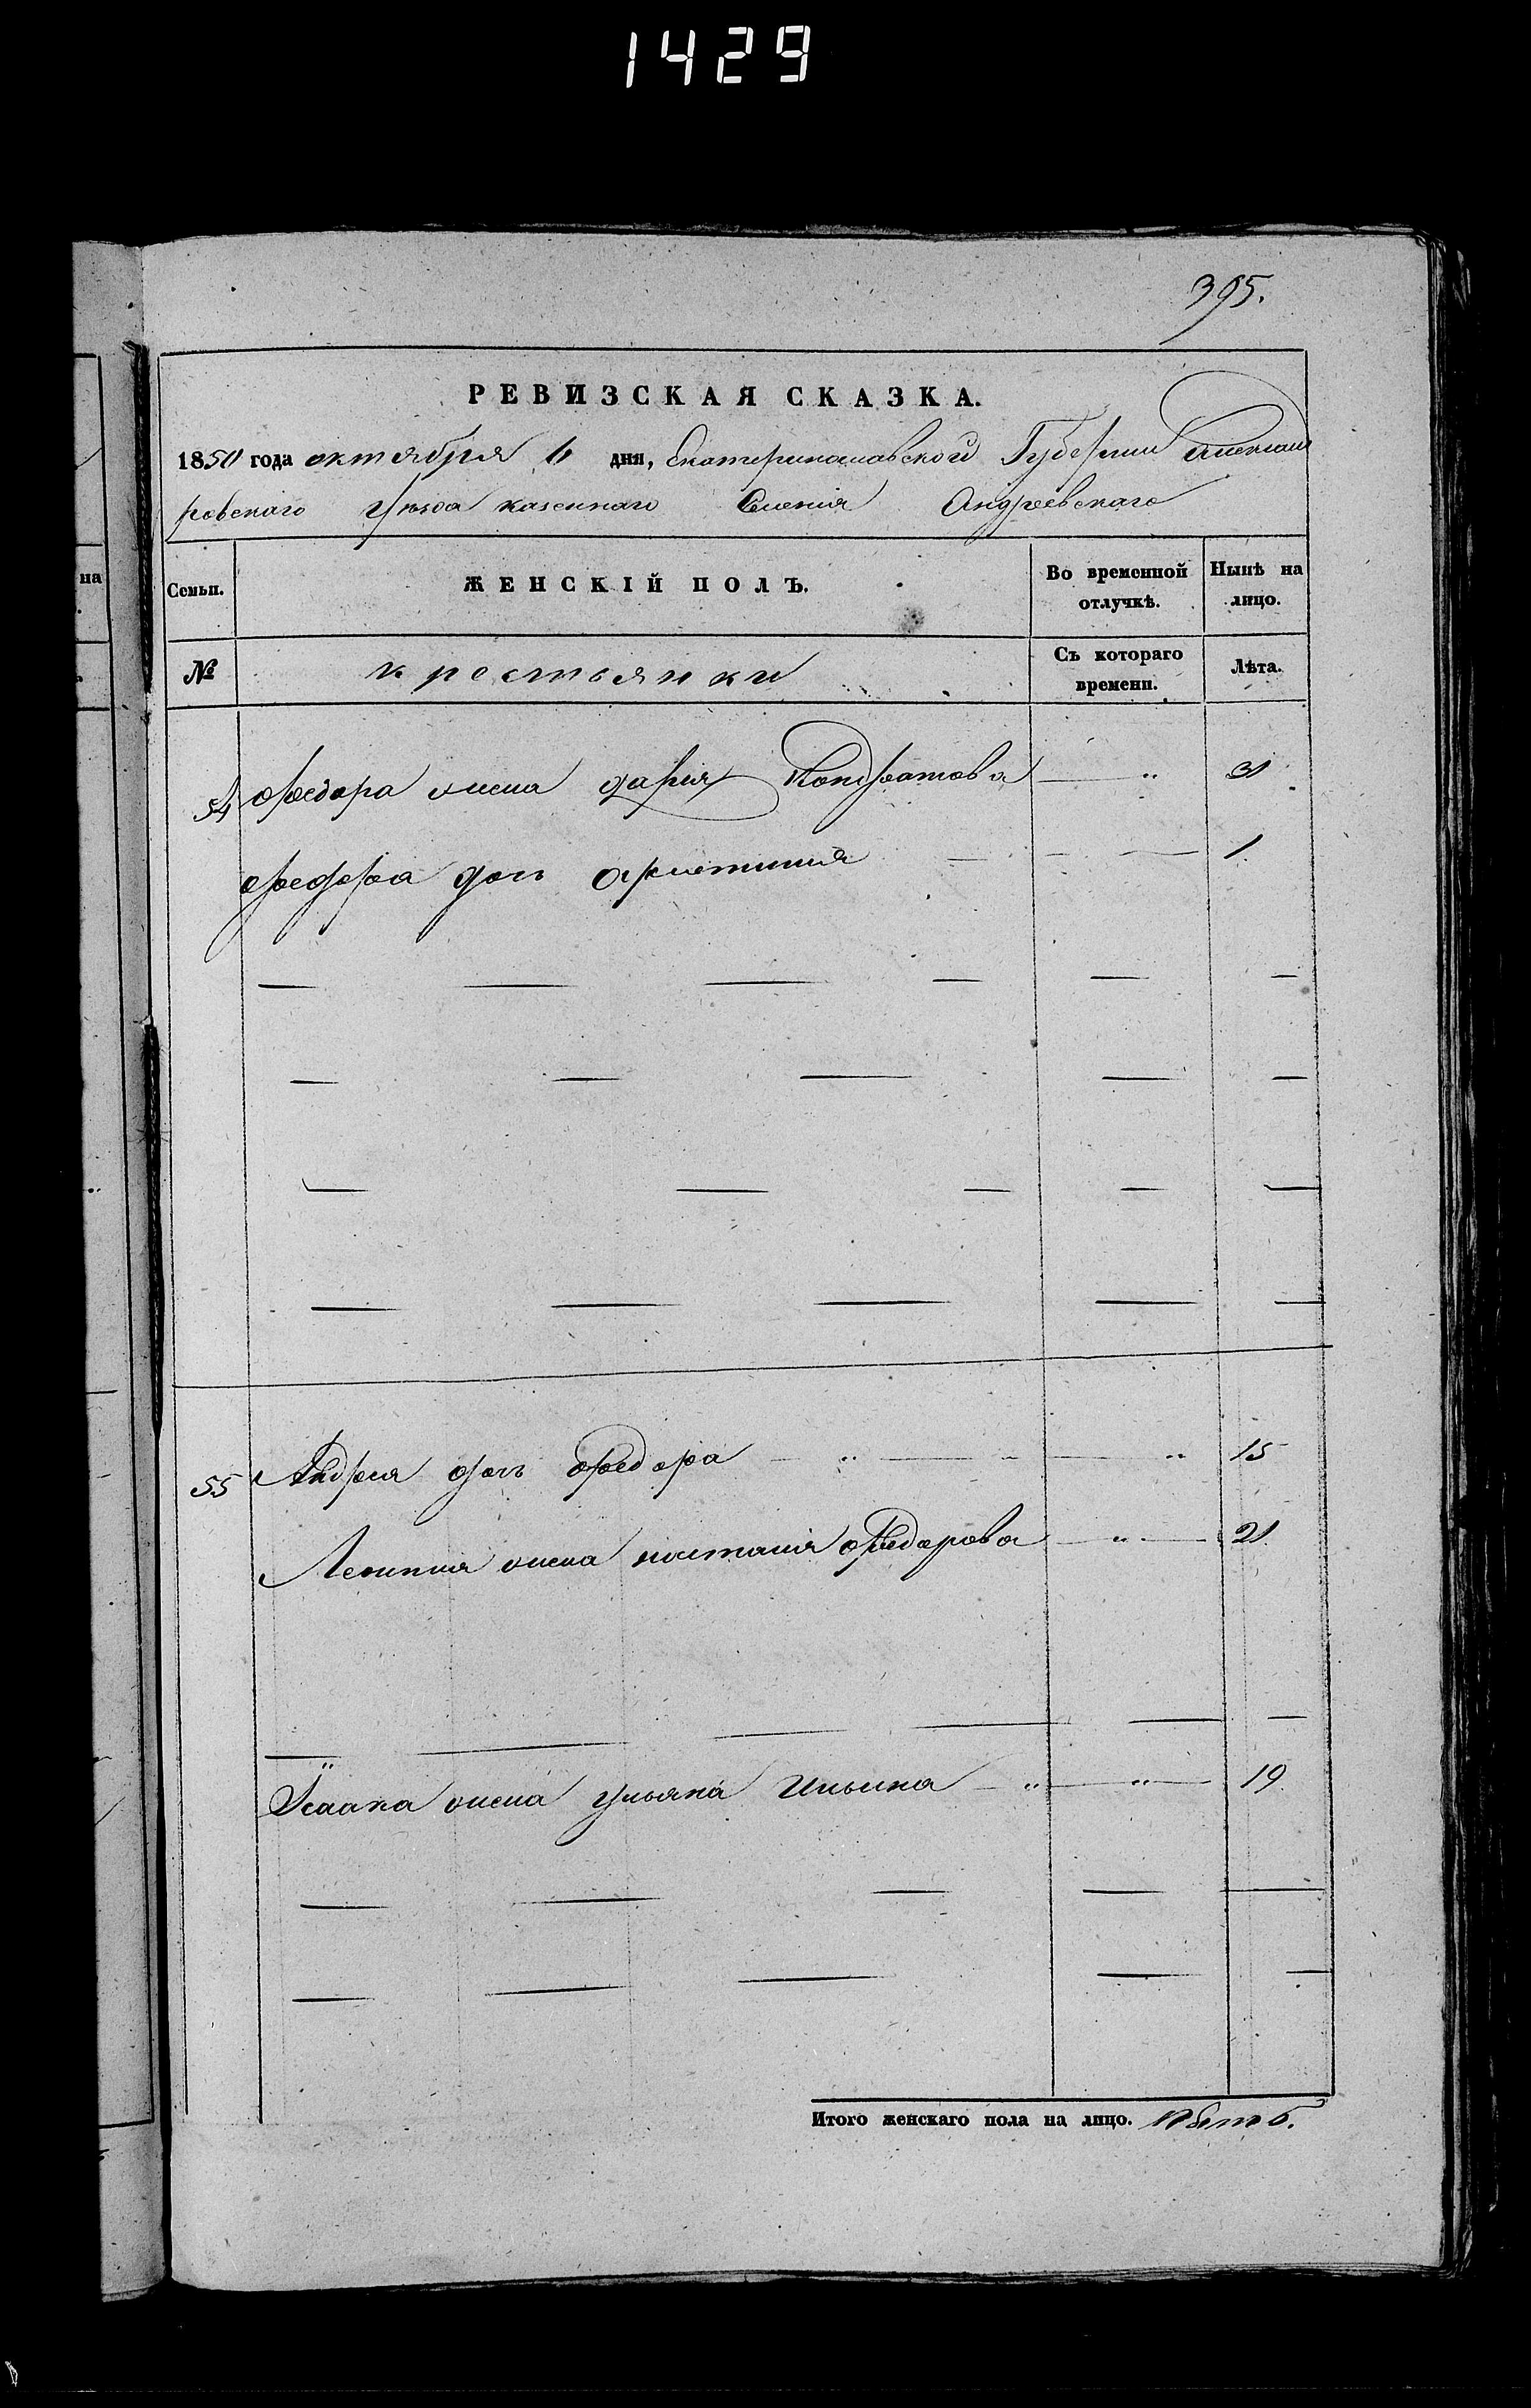 1429
395.
РЕВИЗСКАЯ СКАЗКА.
1850 года октября 6 дня, Екатеринославской Губернии Александ
ровскаго Уѣзда казеннаго Селенія Андреевскаго
на
Семьи. ЖЕНСКІЙ ПОЛЪ. Во временной отлучкѣ. Нынѣ на лицо.
№ крестьянки Съ котораго времени. Лѣта.
54 Федора жена дарья Кондратова — " 31
Федора доч — — — 1.
55 Андрея доч Федора — " — " — " 15
жена Федорова — " — 21
Ісаака жена ульяна Ильина — " — " — 19
Итого женскаго пола на лицо. пять.